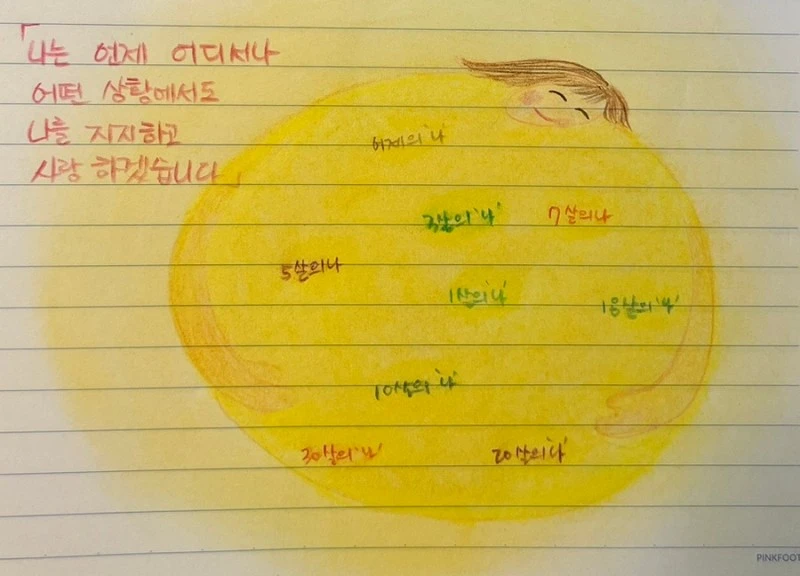 「나는 언제 어디서나
어떤 상황에서도
나를 지지하고
사랑 하겠습니다」
어제의 '나'
3살의 '나' 7살의나
5살의나
1살의 '나' 18살의 '나'
10살의 '나'
30살의 '나' 20살의 '나'
PINKFOOT